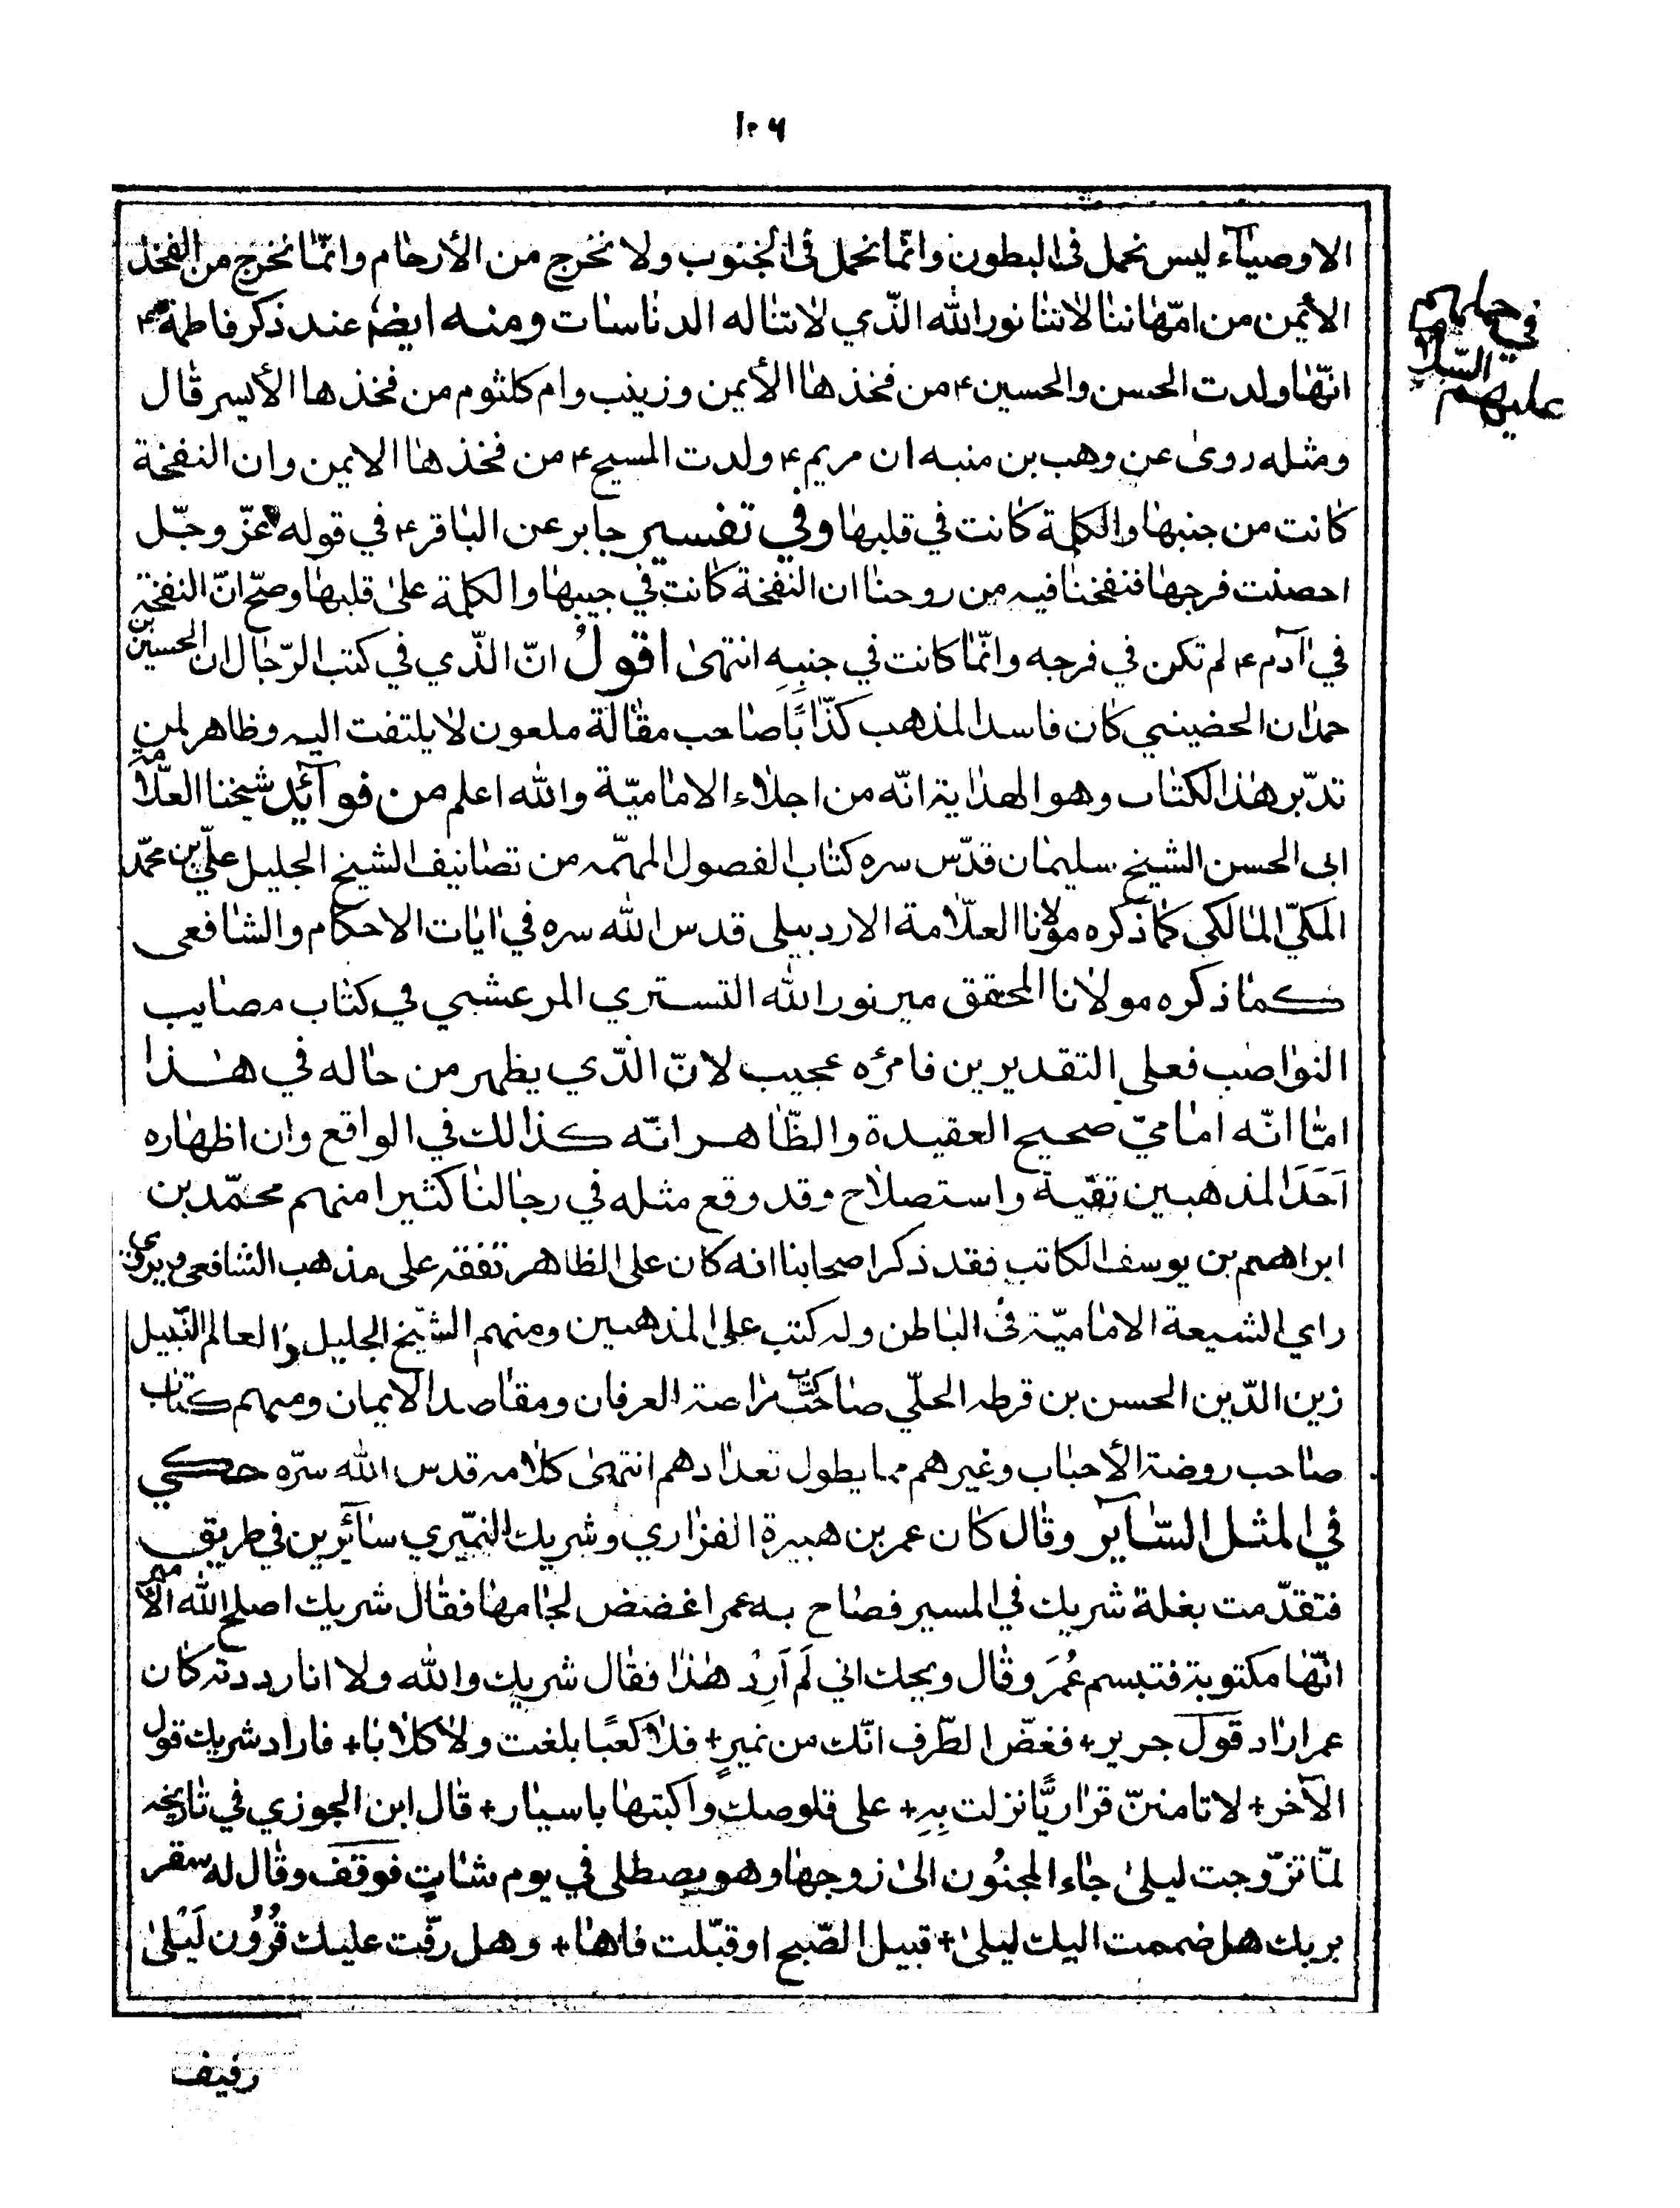 ١٠٦
الاوصيآء ليس نحمل فى البطون وانّما نحمل فى الجنوب ولا نخرج من الأرحام وانّما نخرج من الفخذ
الأيمن من امّهاتنا لاننا نور الله الذّي لاتناله الدناسات ومنه ايضا عند ذكر فاطمة ع
انّها ولدت الحسن والحسين ع من فخذها الأيمن وزينب وام كلثوم من فخذها الأيسر قال
ومثله روى عن وهب بن منبه ان مريم ع ولدت المسيح ع من فخذها الايمن وان النفخة
كانت من جنبها والكلمة كانت في قلبها وفي تفسير جابر عن الباقر ع في قوله عزّ وجّل
احصنت فرجها فنفخنا فيه من روحنا ان النفخة كانت في جيبها والكلمة على قلبها وصحّ انّ النفخة
في آدم ع لم تكن في فرجه وانّما كانت في جنبهِ انتهى اقولُ انّ الذّي في كتب الرّجال ان الحسين بن
حمدان الحضيني كان فاسد المذهب كذّابًا صاحب مقالة ملعون لا يلتفت اليه وظاهر لمن
تدبّر هذا الكتاب وهو الهداية انّه من اجلاء الاماميّة والله اعلم من فوآئد شيخنا العلّامة
ابى الحسن الشيخ سليمان قدّس سره كتاب الفصول المهمّه من تصانيف الشيخ الجليل علّي بن محمّد
المكلّي المالكي كما ذكره مولانا العلّامة الاردبيلى قدس الله سره في ايات الاحكام والشافعى
كما ذكره مولانا المحقق مير نور الله التستري المرعشي في كتاب مصايب
النواصب فعلى التقديرين فامرُه عجيب لانّ الذّي يظهر من حاله في هذا
امّا انّه اماميّ صحيح العقيدة والظّاهر انّه كذالك في الواقع وان اظهاره
اَحَدَ المذهبين تقيّة واستصلاح وقد وقع مثله في رجالنا كثيرا منهم محمّد بن
ابراهيم بن يوسف الكاتب فقد ذكر اصحابنا انه كان على الظاهر تفقه على مذهب الشافعى ويرى
راي الشيعة الاماميّة في الباطن وله كتب على المذهبين ومنهم الشّيخ الجليل والعالم النّبيل
زين الدّين الحسن بن قرطه الحلّي صاحب كتاب مراصة العرفان ومقاصد الايمان ومنهم كتاب
صاحب روضة الأحباب وغيرهم مما يطول تعدادهم انتهى كلامه قدس الله سرّه حكي
في المثل السّاير وقال كان عمر بن هبيرة الفزاري وشريك النمّيري سآئرين في طريق
فتقدّمت بغلة شريك في المسير فصاح به عمر اغضض لجامها فقال شريك اصلح الله الأمير
انّها مكتوبة فتبسم عُمَر وقال ويحك اني لَم اَرِدْ هذا فقال شريك والله ولا انا رددته كان
عمر اراد قول جرير + فغضّ الطّرف انّك من نميرٍ + فلا كعبًا بلغت ولا كلابا + فاراد شريك قول
الآخر + لا تامننّ قراريًّا نزلت بِهِ + على قلوصك واكتبها باسيار + قال ابن الجوزي في تاريخه
لمّا تزّوجت ليلى جاء المجنُون الى زوجها وهو يصطلى في يوم شاتٍ فوقف وقال له سقر
بربك هل ضممت اليك ليلى + قبيل الصّبح او قبّلت فاها + وهل رفّت عليك قُرُون لَيْلى
رفيف
في حملهم
عليهم السّلام